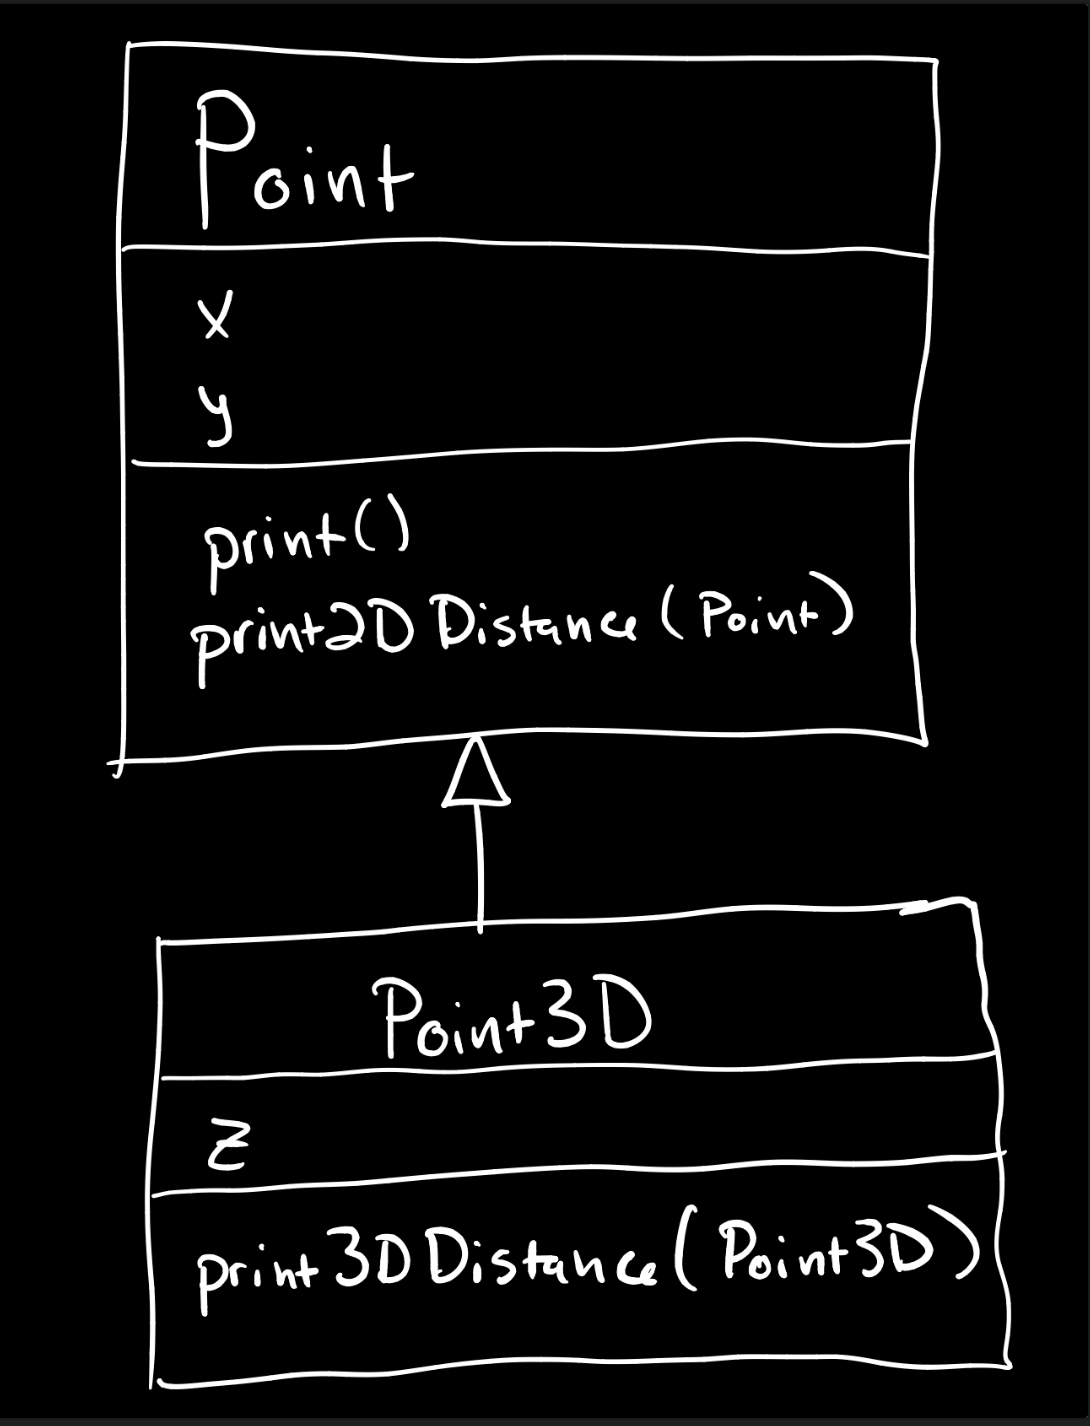 Point
x
y
print()
print2DDistance(Point)
Point3D
z
print3DDistance(Point3D)